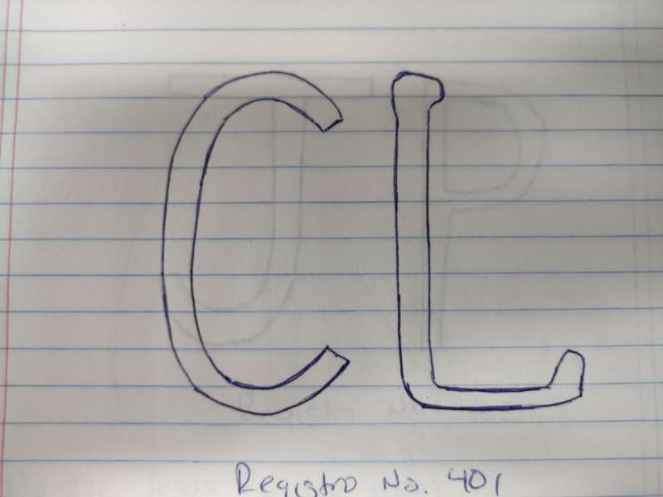 CL
Registro No. 401